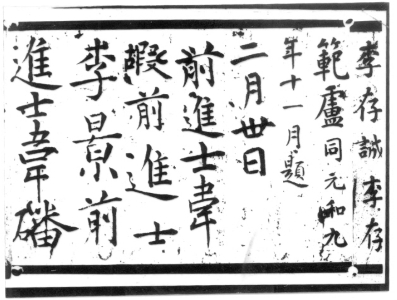 李存誠 李存
範盧同元和九
年十一月題
二月丗日
前進士韋
嘏前進士
李景前
進士韋磻